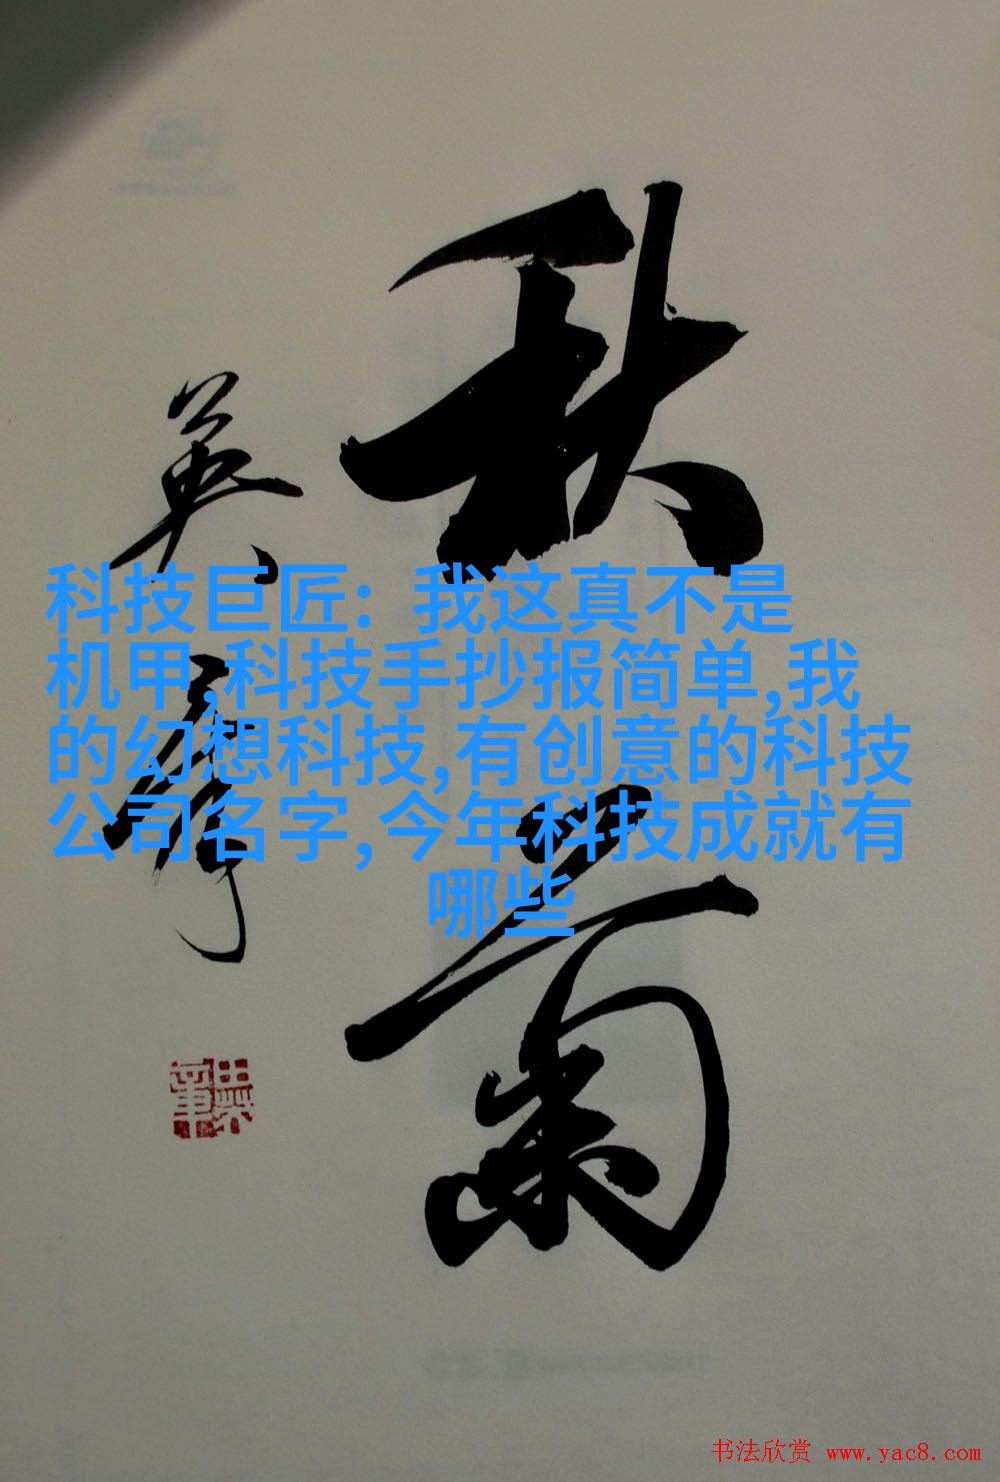 秋菊
英章
科技巨匠：我这真不是
机甲,科技手抄报简单,我
的幻想科技,有创意的科技
公司名字,今年科技成就有
哪些
书法欣赏 www.yac8.com